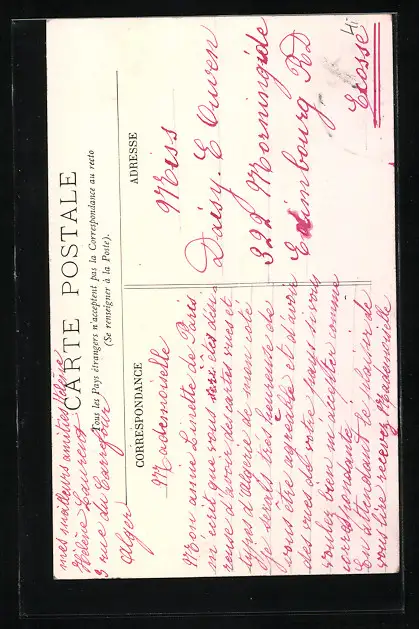 CARTE POSTALE
Tous les Pays étrangers n'acceptent pas la Correspondance au recto
(Se renseigner à la Poste).
CORRESPONDANCE
ADRESSE
Mademoiselle
Mon amie Linette de Paris
m'écrit que vous êtes désireuse
d'avoir des cartes vues et
types d'Algérie de mon côté
Je serais très heureuse de
vous être agréable et d'avoir
des vues de votre pays si vous
voulez bien m'accepter comme
correspondante
En attendant le plaisir de
vous lire recevez Mademoiselle
mes meilleurs amitiés Hélène
Hélène Laurent
3 rue du
Alger
Miss
Daisy. E Owen
322 Morningside
RD
Ecosse